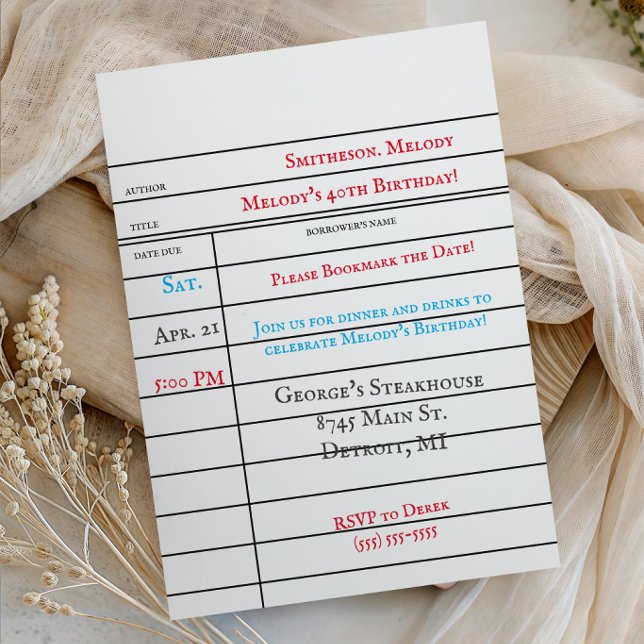 AUTHOR Smitheson. Melody
TITLE Melody's 40th Birthday!
DATE DUE BORROWER'S NAME
Sat. Please Bookmark the Date!
Apr. 21 Join us for dinner and drinks to
celebrate Melody's Birthday!
5:00 PM George's Steakhouse
8745 Main St.
Detroit, MI
RSVP to Derek
(555) 555-5555